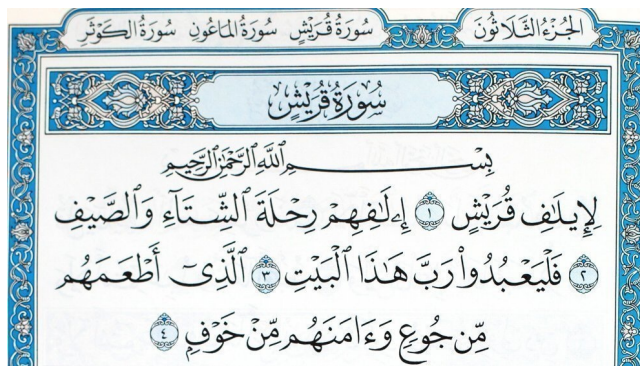 الجزء الثلاثون
سورة قريش سورة الماعون سورة الكوثر
سُورَةُ قُرَيْشٍ
بِسْمِ ٱللَّهِ ٱلرَّحْمَٰنِ ٱلرَّحِيمِ
لِإِيلَٰفِ قُرَيْشٍ ١ إِۦلَٰفِهِمْ رِحْلَةَ ٱلشِّتَآءِ وَٱلصَّيْفِ
٢ فَلْيَعْبُدُوا۟ رَبَّ هَٰذَا ٱلْبَيْتِ ٣ ٱلَّذِىٓ أَطْعَمَهُم
مِّن جُوعٍ وَءَامَنَهُم مِّنْ خَوْفٍۭ ٤